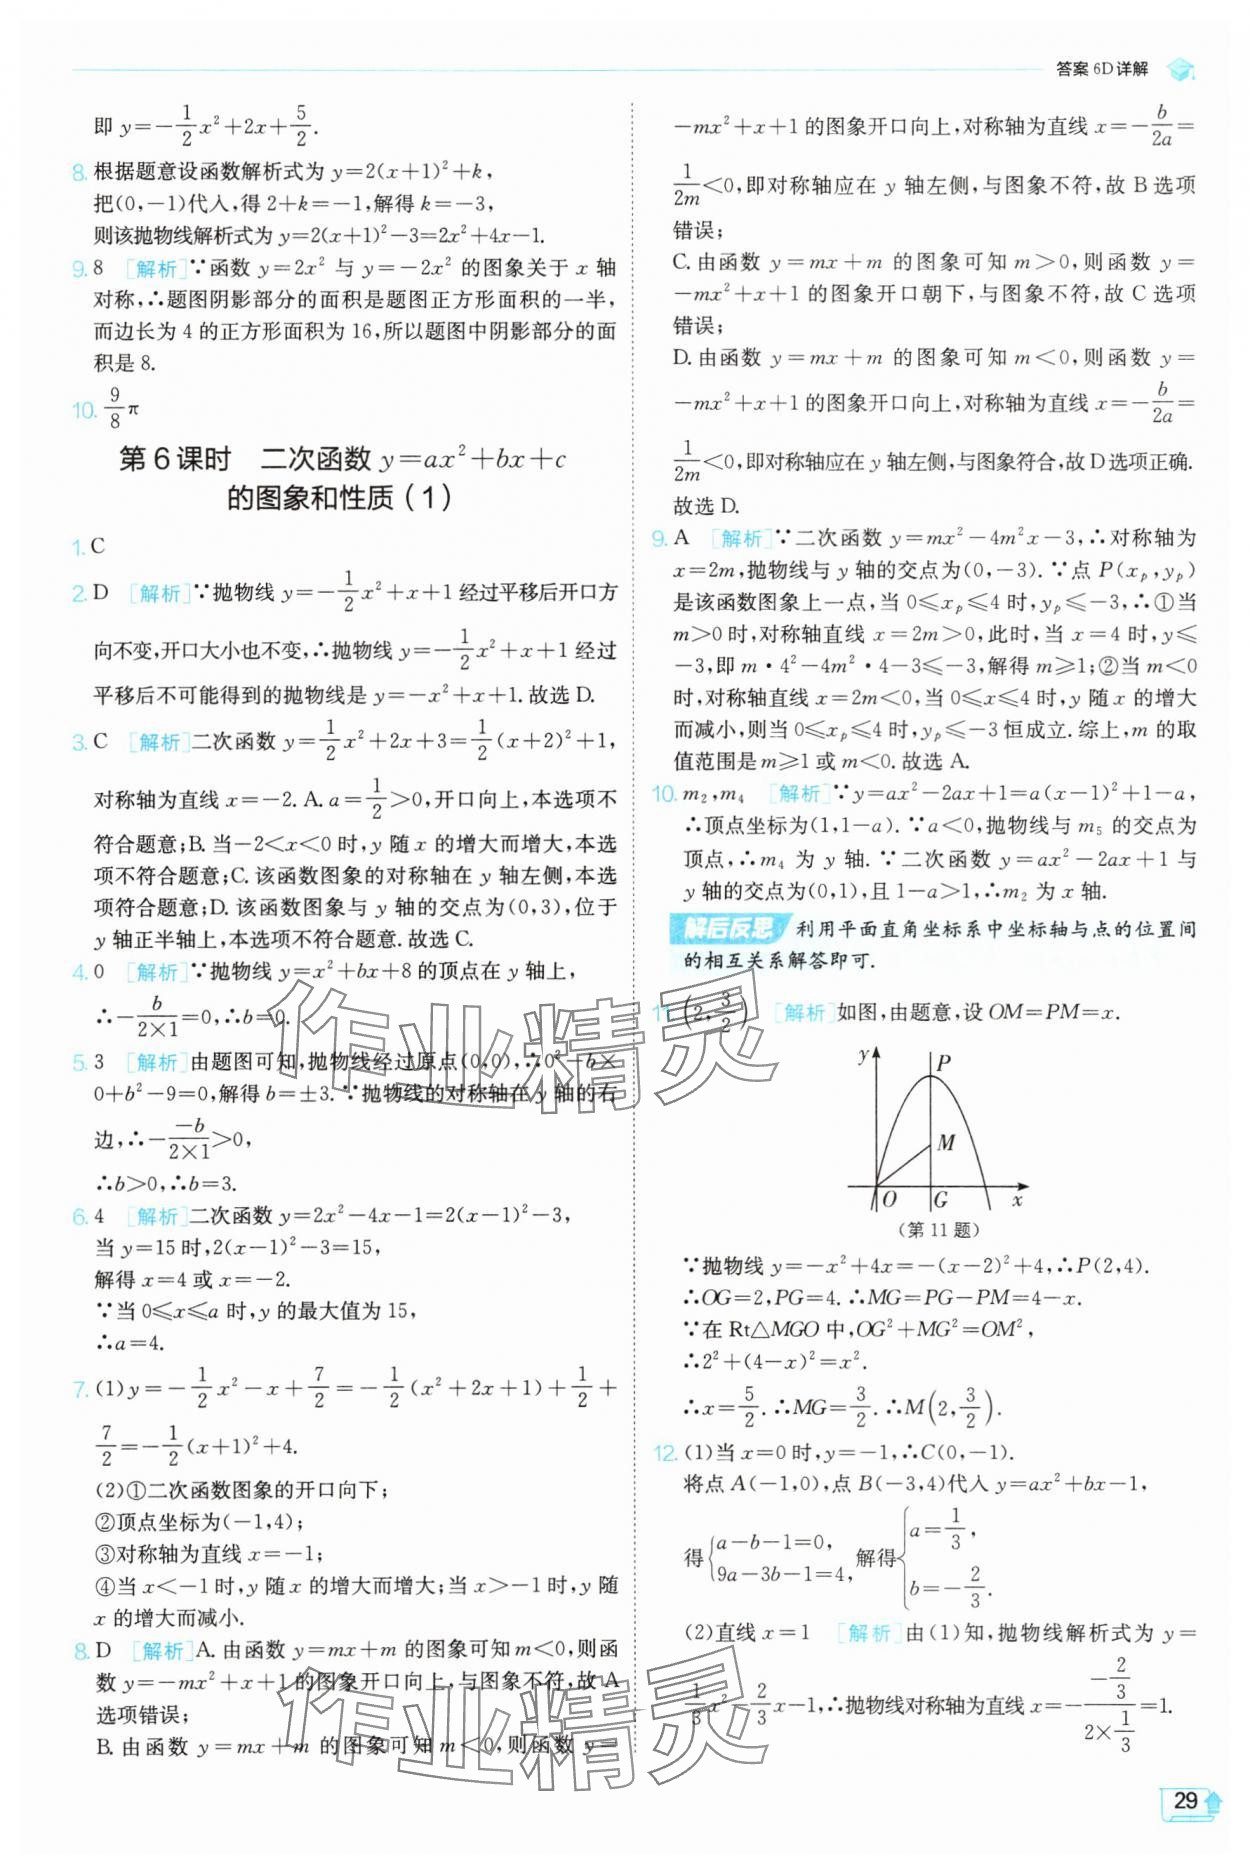 答案 6D详解
即 y=-1/2x²+2x+5/2.
8. 根据题意设函数解析式为 y=2(x+1)²+k,
把(0,-1)代入,得 2+k=-1,解得 k=-3,
则该抛物线解析式为 y=2(x+1)²-3=2x²+4x-1.
9. 8 [解析]∵函数 y=2x² 与 y=-2x² 的图象关于 x 轴
对称,∴题图阴影部分的面积是题图正方形面积的一半,
而边长为 4 的正方形面积为 16,所以题图中阴影部分的面
积是 8.
10. 9/8π
第 6 课时 二次函数 y=ax²+bx+c
的图象和性质(1)
1. C
2. D [解析]∵抛物线 y=-1/2x²+x+1 经过平移后开口方
向不变,开口大小也不变,∴抛物线 y=-1/2x²+x+1 经过
平移后不可能得到的抛物线是 y=-x²+x+1. 故选 D.
3. C [解析]二次函数 y=1/2x²+2x+3=1/2(x+2)²+1,
对称轴为直线 x=-2. A. a=1/2>0,开口向上,本选项不
符合题意;B. 当-2<x<0 时,y 随 x 的增大而增大,本选
项不符合题意;C. 该函数图象的对称轴在 y 轴左侧,本选
项符合题意;D. 该函数图象与 y 轴的交点为(0,3),位于
y 轴正半轴上,本选项不符合题意. 故选 C.
4. 0 [解析]∵抛物线 y=x²+bx+8 的顶点在 y 轴上,
∴-b/(2×1)=0,∴b=0.
5. 3 [解析]由题图可知,抛物线经过原点(0,0),∴0²+b×
0+b²-9=0,解得 b=±3. ∵抛物线的对称轴在 y 轴的右
边,∴-(-b)/(2×1)>0,
∴b>0,∴b=3.
6. 4 [解析]二次函数 y=2x²-4x-1=2(x-1)²-3,
当 y=15 时,2(x-1)²-3=15,
解得 x=4 或 x=-2.
∵当 0≤x≤a 时,y 的最大值为 15,
∴a=4.
7. (1)y=-1/2x²-x+7/2=-1/2(x²+2x+1)+1/2+
7/2=-1/2(x+1)²+4.
(2)①二次函数图象的开口向下;
②顶点坐标为(-1,4);
③对称轴为直线 x=-1;
④当 x<-1 时,y 随 x 的增大而增大;当 x>-1 时,y 随
x 的增大而减小.
8. D [解析]A. 由函数 y=mx+m 的图象可知 m<0,则函
数 y=-mx²+x+1 的图象开口向上,与图象不符,故 A
选项错误;
B. 由函数 y=mx+m 的图象可知 m<0,则函数 y=
-mx²+x+1 的图象开口向上,对称轴为直线 x=-b/2a=
1/2m<0,即对称轴应在 y 轴左侧,与图象不符,故 B 选项
错误;
C. 由函数 y=mx+m 的图象可知 m>0,则函数 y=
-mx²+x+1 的图象开口朝下,与图象不符,故 C 选项
错误;
D. 由函数 y=mx+m 的图象可知 m<0,则函数 y=
-mx²+x+1 的图象开口向上,对称轴为直线 x=-b/2a=
1/2m<0,即对称轴应在 y 轴左侧,与图象符合,故 D 选项正确.
故选 D.
9. A [解析]∵二次函数 y=mx²-4m²x-3,∴对称轴为
x=2m,抛物线与 y 轴的交点为(0,-3). ∵点 P(xₚ,yₚ)
是该函数图象上一点,当 0≤xₚ≤4 时,yₚ≤-3,∴①当
m>0 时,对称轴直线 x=2m>0,此时,当 x=4 时,y≤
-3,即 m·4²-4m²·4-3≤-3,解得 m≥1;②当 m<0
时,对称轴直线 x=2m<0,当 0≤x≤4 时,y 随 x 的增大
而减小,则当 0≤xₚ≤4 时,yₚ≤-3 恒成立. 综上,m 的取
值范围是 m≥1 或 m<0. 故选 A.
10. m₂,m₄ [解析]∵y=ax²-2ax+1=a(x-1)²+1-a,
∴顶点坐标为(1,1-a). ∵a<0,抛物线与 m₅ 的交点为
顶点,∴m₄ 为 y 轴. ∵二次函数 y=ax²-2ax+1 与
y 轴的交点为(0,1),且 1-a>1,∴m₂ 为 x 轴.
解后反思 利用平面直角坐标系中坐标轴与点的位置间
的相互关系解答即可.
11. (2,3/2) [解析]如图,由题意,设 OM=PM=x.
y P
M
O G x
(第 11 题)
∵抛物线 y=-x²+4x=-(x-2)²+4,∴P(2,4).
∴OG=2,PG=4. ∴MG=PG-PM=4-x.
∵在 Rt△MGO 中,OG²+MG²=OM²,
∴2²+(4-x)²=x².
∴x=5/2. ∴MG=3/2. ∴M(2,3/2).
12. (1)当 x=0 时,y=-1,∴C(0,-1).
将点 A(-1,0),点 B(-3,4)代入 y=ax²+bx-1,
得{a-b-1=0, 9a-3b-1=4, 解得{a=1/3, b=-2/3.
(2)直线 x=1 [解析]由(1)知,抛物线解析式为 y=
1/3x²-2/3x-1,∴抛物线对称轴为直线 x=-(-2/3)/(2×1/3)=1.
29
作业精灵
作业精灵